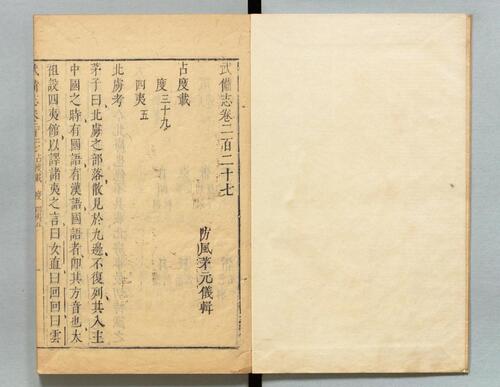 武備志卷二百二十七
防風茅元儀輯
占度載
度三十九
四夷五
北虜考
茅子曰北虜之部落散見於九邊不復列其入主
中國之時有國語有漢語國語者即其方音也太
祖設四夷館以譯諸夷之言曰女直曰回回曰雲